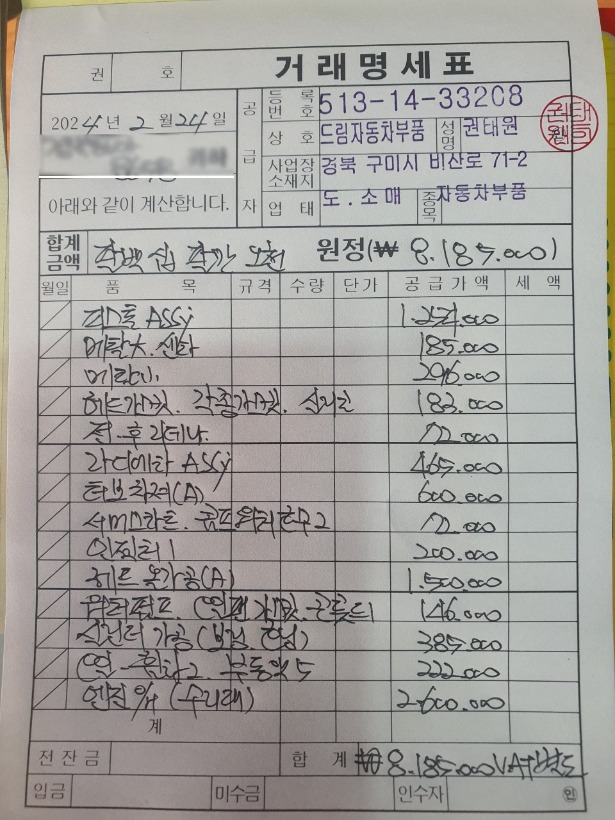 권 호 거래명세표
2024년 2월 24일
아래와 같이 계산합니다.
공급자
등록번호 513-14-33208
상호 드림자동차부품 성명 권태원
사업장소재지 경북 구미시 비산로 71-2
업태 도.소매 종목 자동차부품
합계금액 팔백 십 팔만 오천 원정(₩ 8.185.000)
월일 품목 규격 수량 단가 공급가액 세액
피스톤 ASSy
메탈大. 센타 185.000
메탈小 296.000
헤드가스켓. 각종가스켓. 실리콘 183.000
전.후 리데나 72.000
라디에타 ASSy 465.000
터보차져(A) 600.000
72.000
인젝터 1 200.000
헤드 가공(A) 1.500.000
146.000
실린더 가공 (보링, 호닝) 385.000
부동액 5 222.000
엔진 O/H (수리대) 2.600.000
계
전잔금 합계 ₩ 8.185.000 VAT별도
입금 미수금 인수자 인